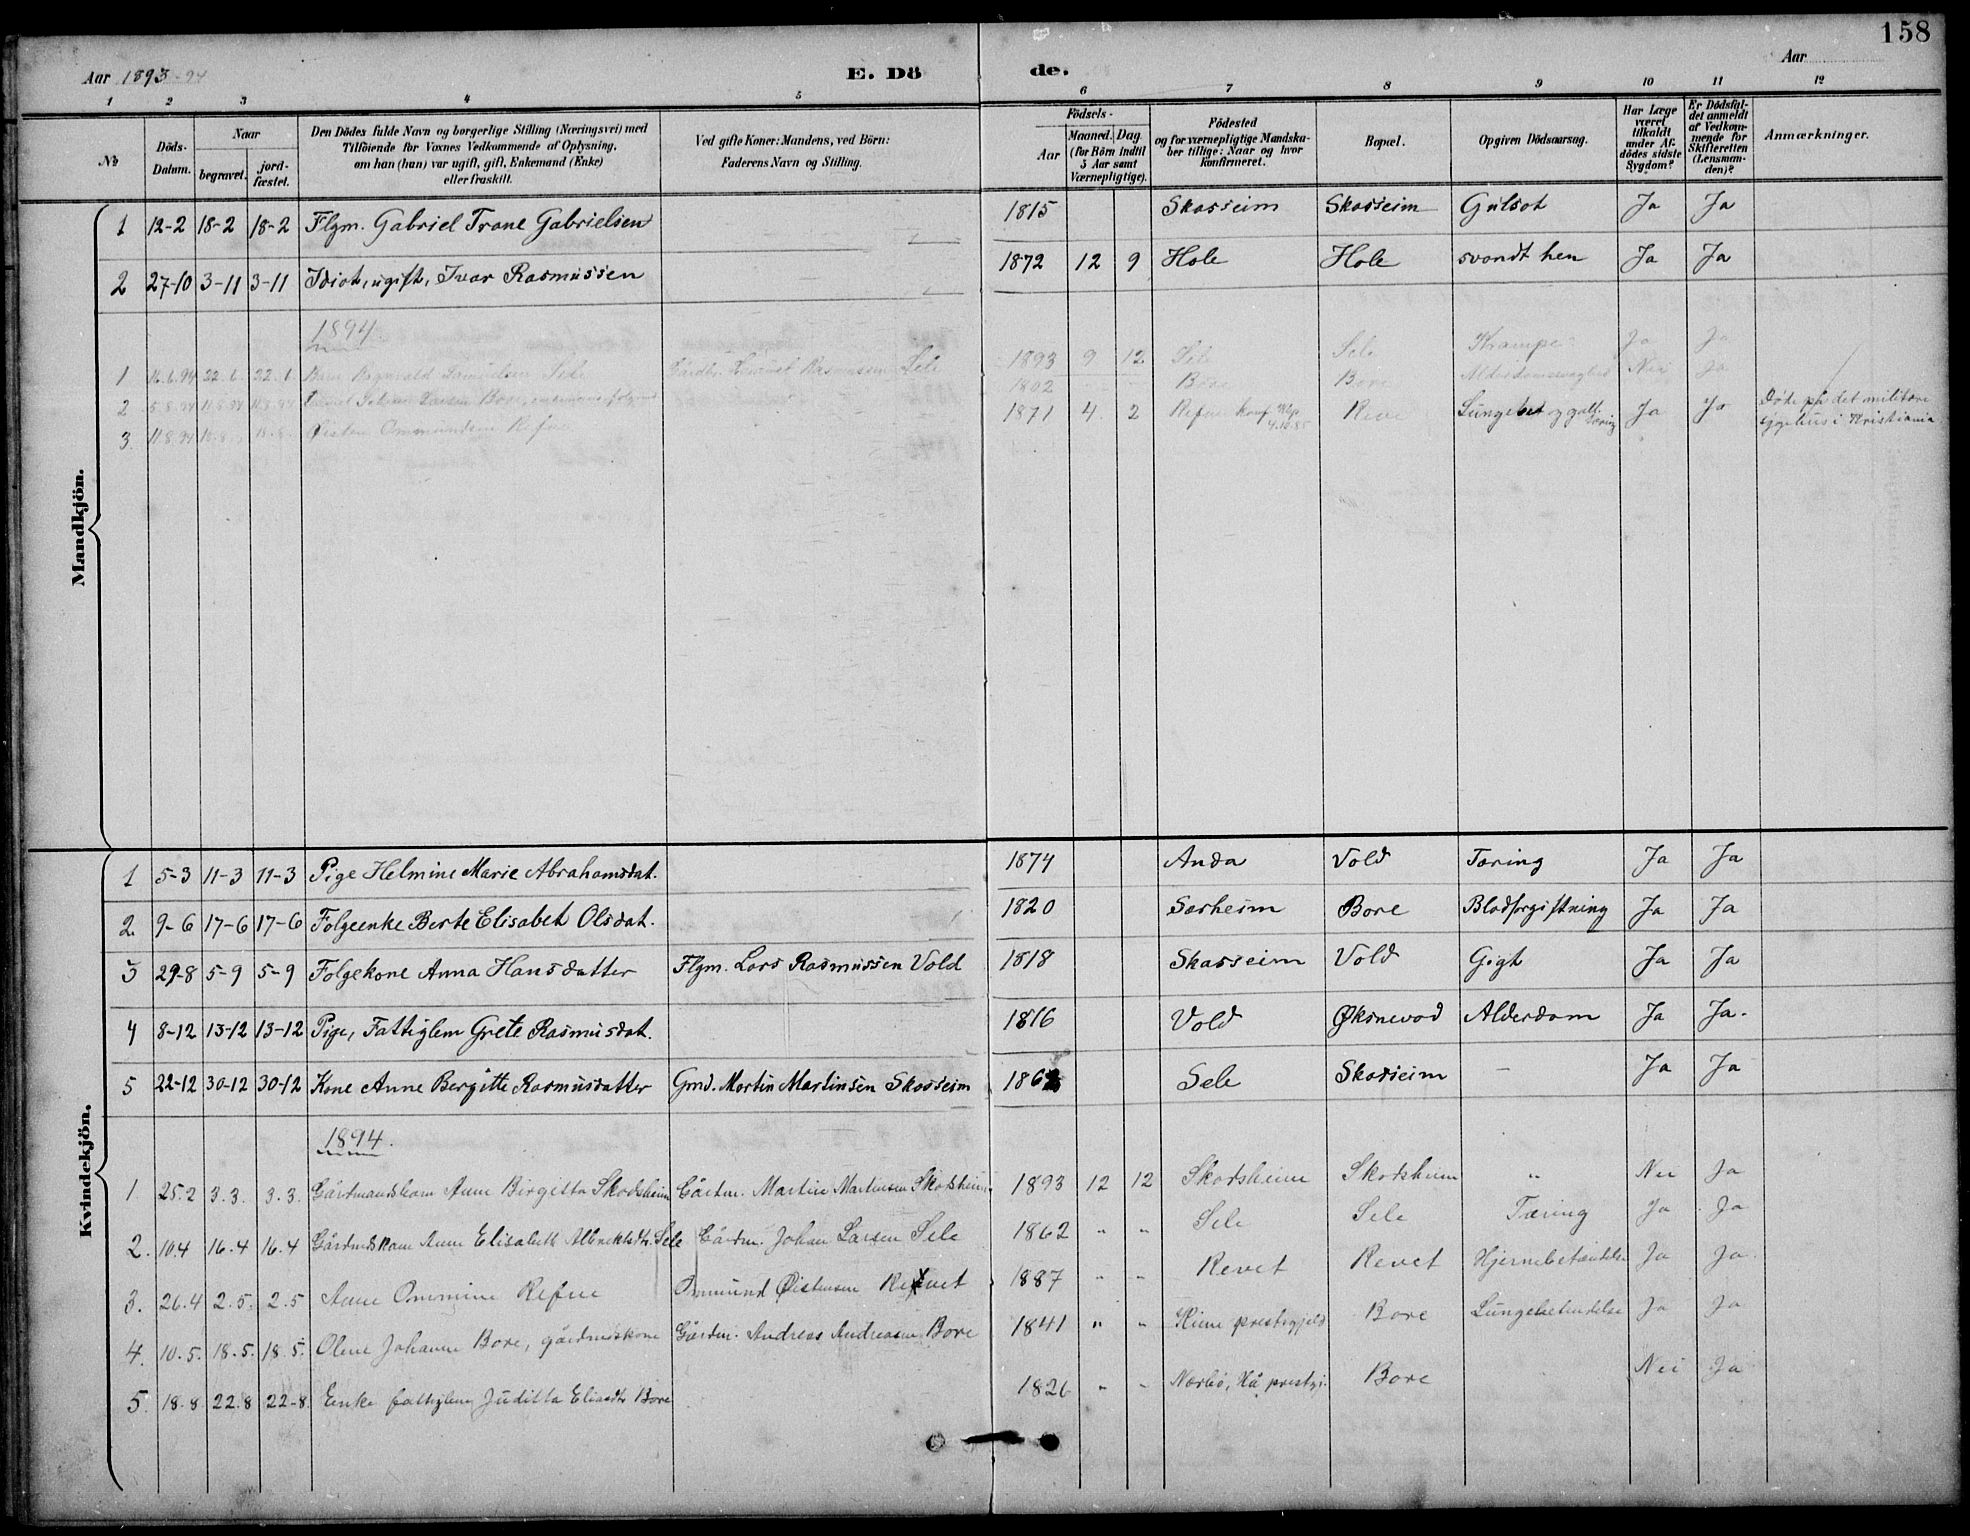 158
Aar 1893-94
E. Dö de.
Aar
1 2 3 4 5 6 7 8 9 10 11 12
No
Döds-Datum.
Naar
begravet.
jord-fæstet.
Den Dödes fulde Navn og borgerlige Stilling (Næringsvei) med
Tilföiende for Voxnes Vedkommende af Oplysning,
om han (hun) var ugift, gift, Enkemand (Enke)
eller fraskilt.
Ved gifte Koner: Mandens, ved Börn:
Faderens Navn og Stilling.
Födsels-
Aar
Maaned. Dag.
(for Börn indtil
5 Aar samt
Værnepligtige).
Födested
og for værnepligtige Mandska-
ber tillige: Naar og hvor
konfirmeret.
Bopæl.
Opgiven Dödsaarsag.
Har Læge
været
tilkaldt
under Af-
dödes sidste
Sygdom?
Er Dödsfal-
det anmeldt
af Vedkom-
mende for
Skifteretten
(Lensman-
den)?
Anmærkninger.
Mandkjön.
1 12-2 18-2 18-2 Flgm. Gabriel Trane Gabrielsen 1815 Skasseim Skasseim Gulsot Ja Ja
2 27-10 3-11 3-11 Idiot, ugift, Ivar Rasmussen 1872 12 9 Hole Hole svandt hen Ja Ja
1894.
1 16.6.94 22.6. 22.6. Barn Sele Gårdbr. Rasmussen Sele 1893 9 12 Sele Sele Krampe Ja Ja
2. 5.8.94 11.8.94 11.8.94 Bore, 1802 Bore Bore Alderdomssvaghed Nei Ja
3. 11.8.94 Østen Ommundsen Refve 1871 4. 2 Refve konf. Klp. 4.10.85 Reve Lungebet og gall. tæring Ja Ja Døde på det militære
sygehus i Kristiania
Kvindekjön.
1 5-3 11-3 11-3 Pige Helmine Marie Abrahamsdat. 1874 Anda Vold Tæring Ja Ja
2. 9-6 17-6 17-6 Folgeenke Berte Elisabet Olsdat. 1820 Særheim Bore Blodforgiftning Ja Ja
3 29-8 5-9 5-9 Folgekone Anna Hansdatter Flgm. Lars Rasmussen Vold 1818 Skasseim Vold Gigt Ja Ja
4 8-12 13-12 13-12 Pige, Fattiglem Grete Rasmusdat. 1816 Vold Øksnevad Alderdom Ja Ja.
5 22-12 30-12 30-12 Kone Anne Bergitte Rasmusdatter Gmd. Martin Martinsen Skasseim 186 Sele Skasseim — Ja Ja
1894.
1. 25.2 3.3. 3.3. Gårdmandsbarn Anne Birgitta Skodsheim Gårdm. Martin Martinsen Skodsheim 1893 12 12 Skodsheim Skodsheim " Nei Ja
2. 10.4 16.4 16.4 Gårdmdskone Anne Elisabeth Albrektsdtr. Sele Gårdm. Johan Larsen Sele 1862 " " Sele Sele Tæring Ja Ja
3. 26.4 2.5. 2.5 Anne Ommine Refve Ommund Østensen Revet 1887 " " Revet Revet Hjernebetændelse Ja Ja
4. 10.5. 18.5. 18.5. Olene Johanne Bore, gårdmdskone Gårdm. Andreas Andreasen Bore 1841 " " Hime prestegjeld Bore Lungebetændelse Ja Ja
5. 18.8 22.8 22-8. Enke fattiglem Juditta Eliasdtr Bore 1826 " " Nærbø, Hå prestgj. Bore Nei Ja